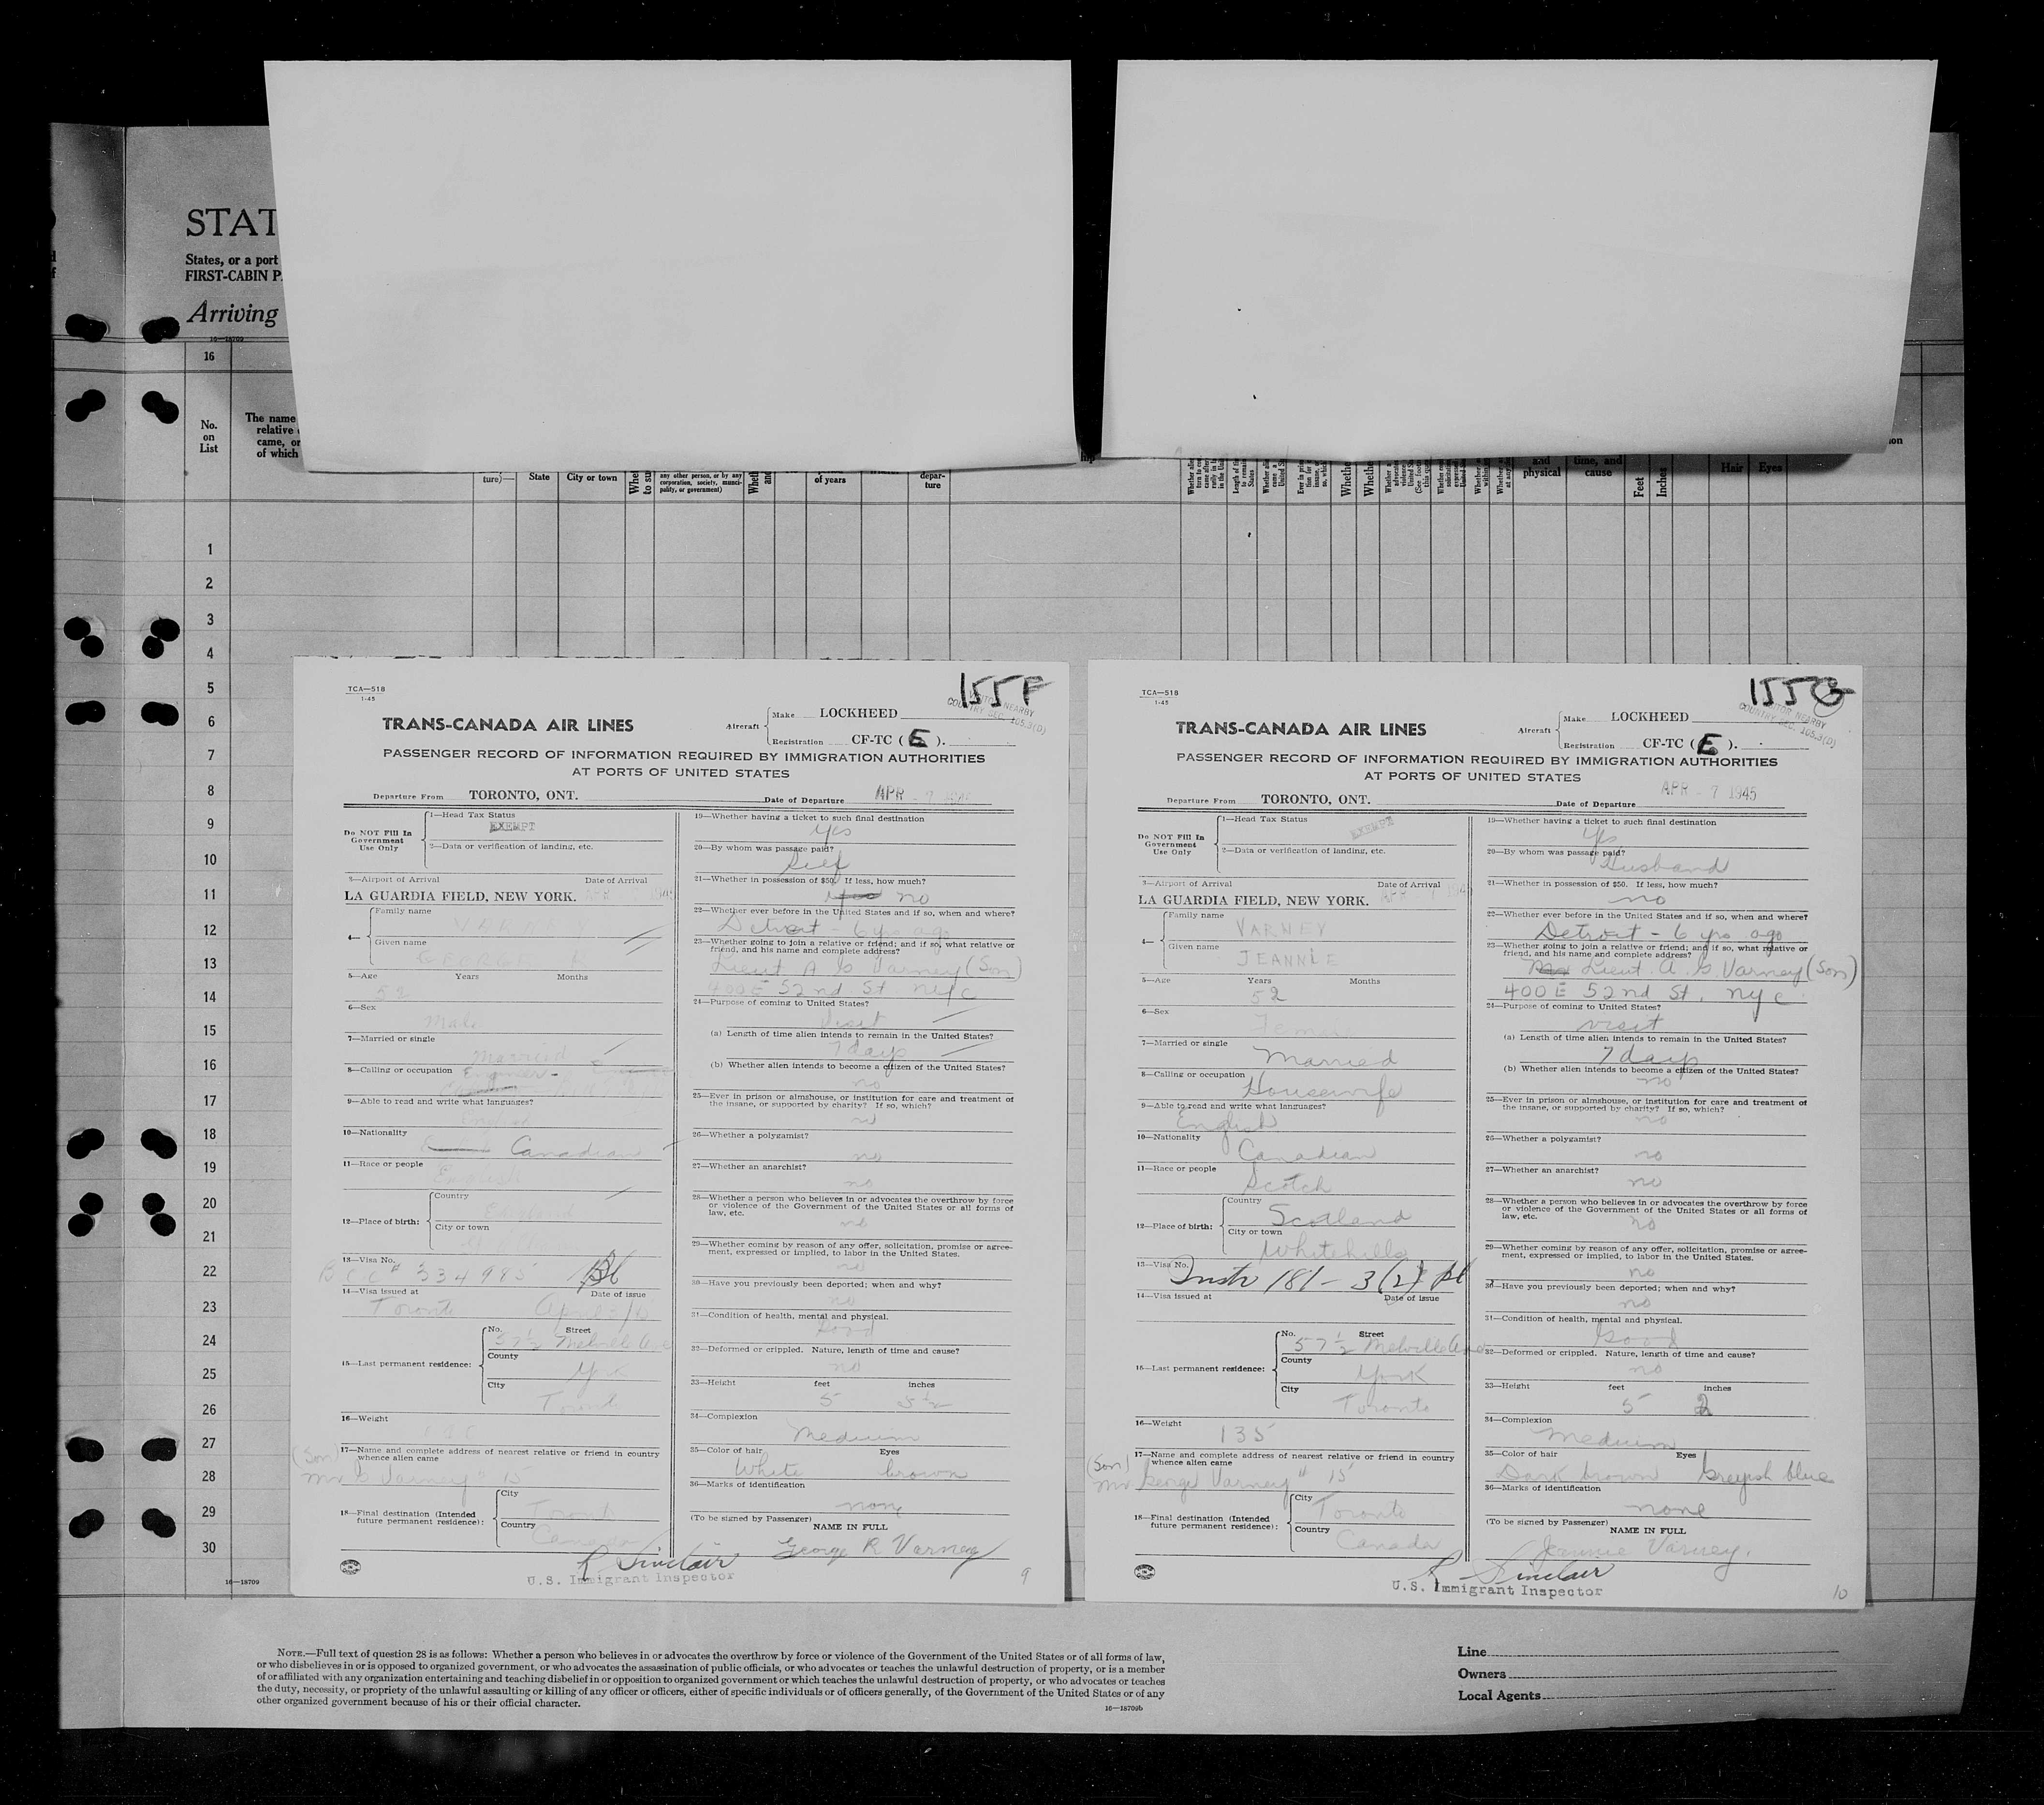 STAT
States, or a port
FIRST-CABIN P
Arriving
16—18709
16
No.
on
List
The name
relative
came, or
of which
ture)—
State
City or town
any other person, or by any
corporation, society, munci-
pality, or government)
of years
depar-
ture
and
physical
time, and
cause
Feet
Inches
Hair
Eyes
1
2
3
4
5
6
7
8
9
10
11
12
13
14
15
16
17
18
19
20
21
22
23
24
25
26
27
28
29
30
16—18709
TCA—518
1-45
155F
TRANS-CANADA AIR LINES
Aircraft
Make LOCKHEED
Registration CF-TC ( E ).
VISITOR NEARBY
COUNTRY SEC. 105.3(D)
PASSENGER RECORD OF INFORMATION REQUIRED BY IMMIGRATION AUTHORITIES
AT PORTS OF UNITED STATES
Departure From TORONTO, ONT. Date of Departure APR - 7 1945
Do NOT Fill In
Government
Use Only
1—Head Tax Status
EXEMPT
2—Data or verification of landing, etc.
3—Airport of Arrival Date of Arrival
LA GUARDIA FIELD, NEW YORK. APR 1945
4—
Family name
VARNEY
Given name
GEORGE R
5—Age Years Months
52
6—Sex
Male
7—Married or single
Married
8—Calling or occupation Engineer -
9—Able to read and write what languages?
English
10—Nationality
Canadian
11—Race or people
English
12—Place of birth:
Country
England
City or town
13—Visa No.
BCC# 334985
14—Visa issued at Date of issue
Toronto April
15—Last permanent residence:
No. Street
57½ Melville Ave
County
York
City
Toronto
16—Weight
17—Name and complete address of nearest relative or friend in country
whence alien came
(Son)
Mr G Varney " 15
18—Final destination (Intended
future permanent residence):
City
Toronto
Country
Canada
19—Whether having a ticket to such final destination
Yes
20—By whom was passage paid?
Self
21—Whether in possession of $50. If less, how much?
no
22—Whether ever before in the United States and if so, when and where?
Detroit - 6 yrs ago
23—Whether going to join a relative or friend; and if so, what relative or
friend, and his name and complete address?
Lieut A G Varney (Son)
400 E 52nd St. NYC
24—Purpose of coming to United States?
Visit
(a) Length of time alien intends to remain in the United States?
7 days
(b) Whether alien intends to become a citizen of the United States?
no
25—Ever in prison or almshouse, or institution for care and treatment of
the insane, or supported by charity? If so, which?
no
26—Whether a polygamist?
no
27—Whether an anarchist?
no
28—Whether a person who believes in or advocates the overthrow by force
or violence of the Government of the United States or all forms of
law, etc.
no
29—Whether coming by reason of any offer, solicitation, promise or agree-
ment, expressed or implied, to labor in the United States.
no
30—Have you previously been deported; when and why?
no
31—Condition of health, mental and physical.
Good
32—Deformed or crippled. Nature, length of time and cause?
no
33—Height feet inches
5 5½
34—Complexion
Medium
35—Color of hair Eyes
White brown
36—Marks of identification
none
(To be signed by Passenger)
NAME IN FULL
George R Varney
R Sinclair
U.S. Immigrant Inspector
9
TCA—518
1-45
155G
TRANS-CANADA AIR LINES
Aircraft
Make LOCKHEED
Registration CF-TC ( E ).
VISITOR NEARBY
COUNTRY SEC. 105.3(D)
PASSENGER RECORD OF INFORMATION REQUIRED BY IMMIGRATION AUTHORITIES
AT PORTS OF UNITED STATES
Departure From TORONTO, ONT. Date of Departure APR - 7 1945
Do NOT Fill In
Government
Use Only
1—Head Tax Status
EXEMPT
2—Data or verification of landing, etc.
3—Airport of Arrival Date of Arrival
LA GUARDIA FIELD, NEW YORK. APR 7 1945
4—
Family name
VARNEY
Given name
JEANNIE
5—Age Years Months
52
6—Sex
Female
7—Married or single
Married
8—Calling or occupation
Housewife
9—Able to read and write what languages?
English
10—Nationality
Canadian
11—Race or people
Scotch
12—Place of birth:
Country
Scotland
City or town
Whitehills
13—Visa No.
Instr 181 - 3(2)
14—Visa issued at Date of issue
15—Last permanent residence:
No. Street
57½ Melville Ave
County
York
City
Toronto
16—Weight
135
17—Name and complete address of nearest relative or friend in country
whence alien came
(Son)
Mr George Varney " 15
18—Final destination (Intended
future permanent residence):
City
Toronto
Country
Canada
19—Whether having a ticket to such final destination
Yes
20—By whom was passage paid?
Husband
21—Whether in possession of $50. If less, how much?
no
22—Whether ever before in the United States and if so, when and where?
Detroit - 6 yrs ago
23—Whether going to join a relative or friend; and if so, what relative or
friend, and his name and complete address?
Lieut. A. G Varney (Son)
400 E 52nd St. NYC
24—Purpose of coming to United States?
visit
(a) Length of time alien intends to remain in the United States?
7 days
(b) Whether alien intends to become a citizen of the United States?
no
25—Ever in prison or almshouse, or institution for care and treatment of
the insane, or supported by charity? If so, which?
no
26—Whether a polygamist?
no
27—Whether an anarchist?
no
28—Whether a person who believes in or advocates the overthrow by force
or violence of the Government of the United States or all forms of
law, etc.
no
29—Whether coming by reason of any offer, solicitation, promise or agree-
ment, expressed or implied, to labor in the United States.
no
30—Have you previously been deported; when and why?
no
31—Condition of health, mental and physical.
Good
32—Deformed or crippled. Nature, length of time and cause?
no
33—Height feet inches
5 2
34—Complexion
Medium
35—Color of hair Eyes
Dark brown Greyish blue
36—Marks of identification
none
(To be signed by Passenger)
NAME IN FULL
Jennie Varney.
R Sinclair
U.S. Immigrant Inspector
10
NOTE.—Full text of question 28 is as follows: Whether a person who believes in or advocates the overthrow by force or violence of the Government of the United States or of all forms of law,
or who disbelieves in or is opposed to organized government, or who advocates the assassination of public officials, or who advocates or teaches the unlawful destruction of property, or is a member
of or affiliated with any organization entertaining and teaching disbelief in or opposition to organized government or which teaches the unlawful destruction of property, or who advocates or teaches
the duty, necessity, or propriety of the unlawful assaulting or killing of any officer or officers, either of specific individuals or of officers generally, of the Government of the United States or of any
other organized government because of his or their official character.
16—18709b
Line
Owners
Local Agents